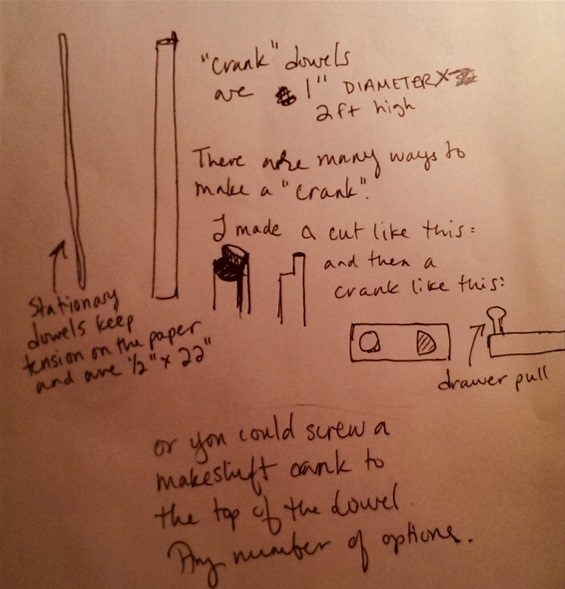 "crank" dowels
are 1" DIAMETER X
2ft high
There are many ways to
make a "crank".
I made a cut like this:
and then a
crank like this:
Stationary
dowels keep
tension on the paper
and are 1/2" x 22"
drawer pull
or you could screw a
makeshift crank to
the top of the dowel.
Any number of options.